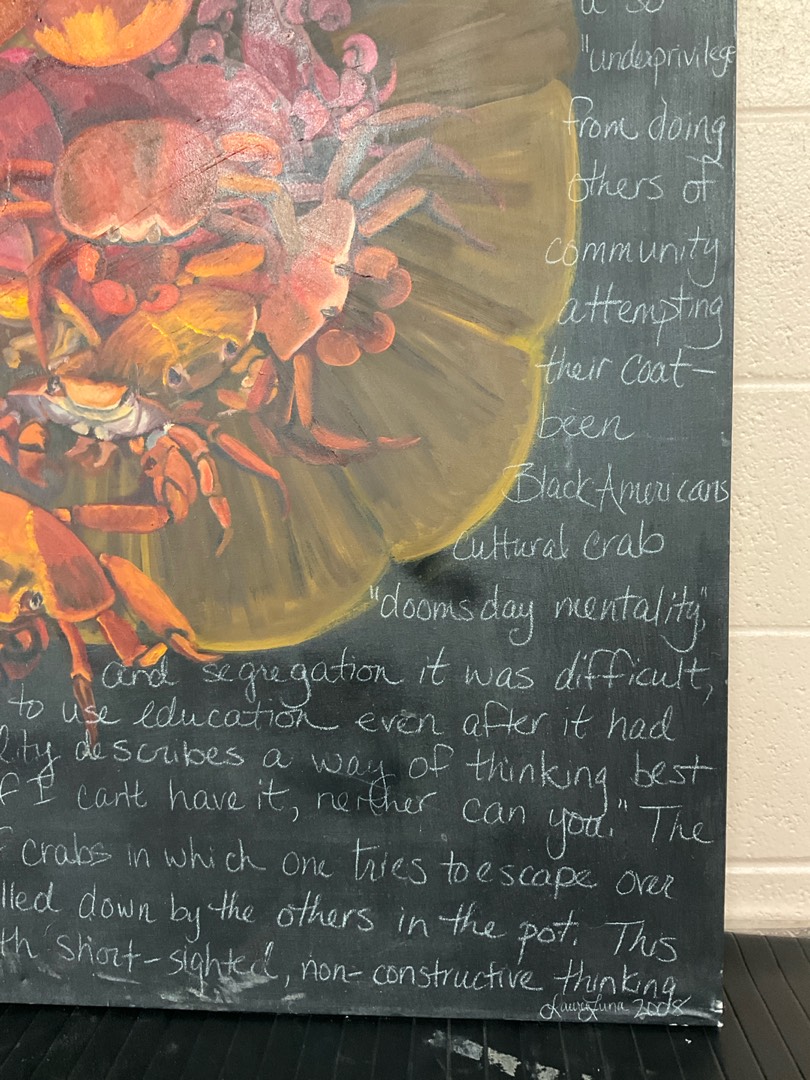 a so
"underprivilege
from doing
others of
community
attempting
their coat-
been
Black Americans
cultural crab
"doomsday mentality",
and segregation it was difficult,
to use education even after it had
lity describes a way of thinking best
f I can't have it, neither can you." The
f crabs in which one tries to escape over
lled down by the others in the pot. This
th short-sighted, non-constructive thinking
Laura Luna 2008